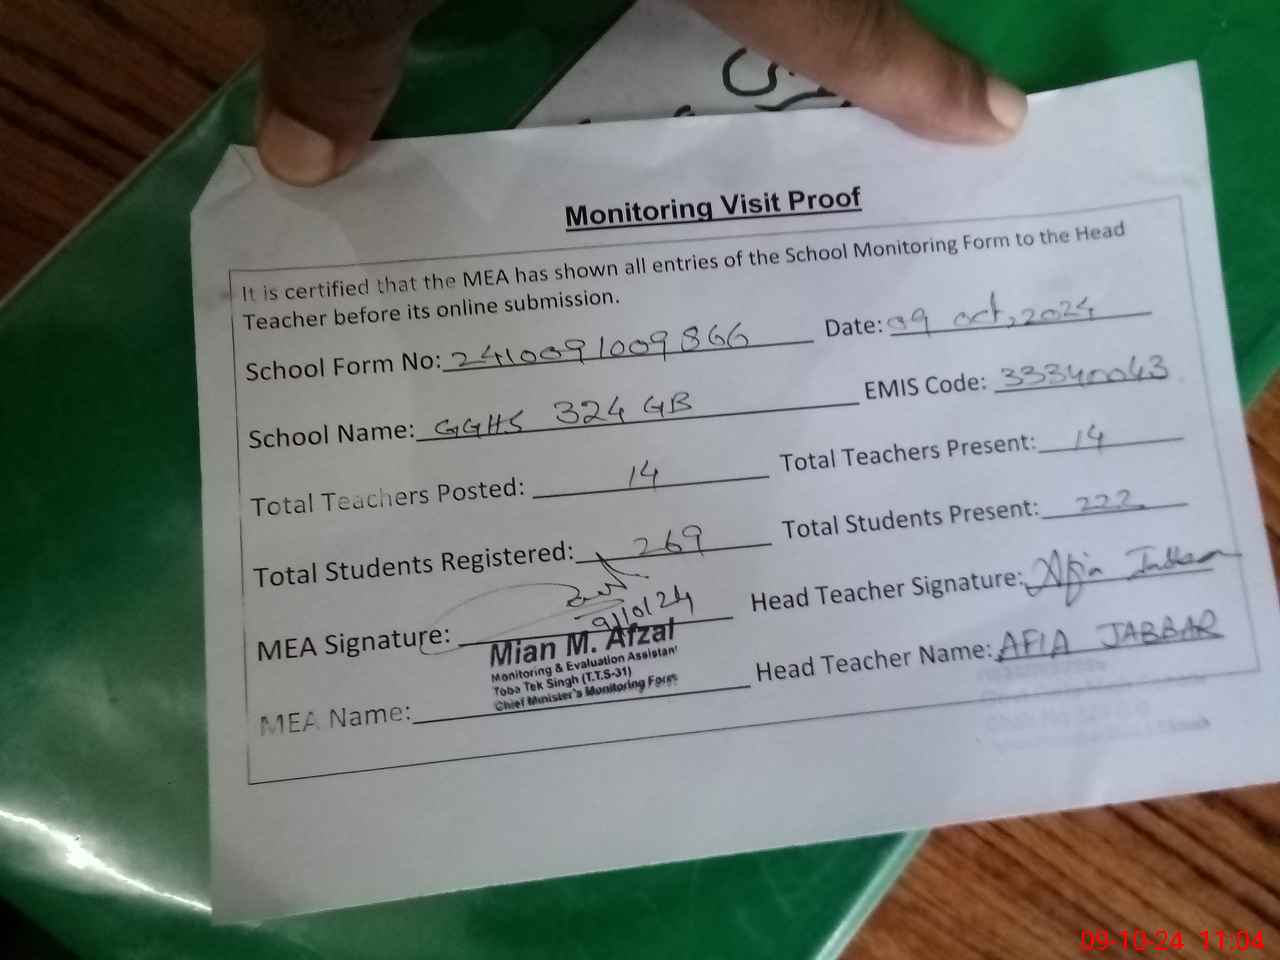 Monitoring Visit Proof
It is certified that the MEA has shown all entries of the School Monitoring Form to the Head
Teacher before its online submission.
School Form No: 2410091009866 Date: 09 oct, 2024
School Name: GGHS 324 GB EMIS Code: 33340043
Total Teachers Posted: 14 Total Teachers Present: 14
Total Students Registered: 269 Total Students Present: 222
MEA Signature: 9/10/24 Head Teacher Signature: Afia Jabbar
Mian M. Afzal
Monitoring & Evaluation Assistant
Toba Tek Singh (T.T.S-31)
Chief Minister's Monitoring Force
MEA Name: Head Teacher Name: AFIA JABBAR
09-10-24 11:04